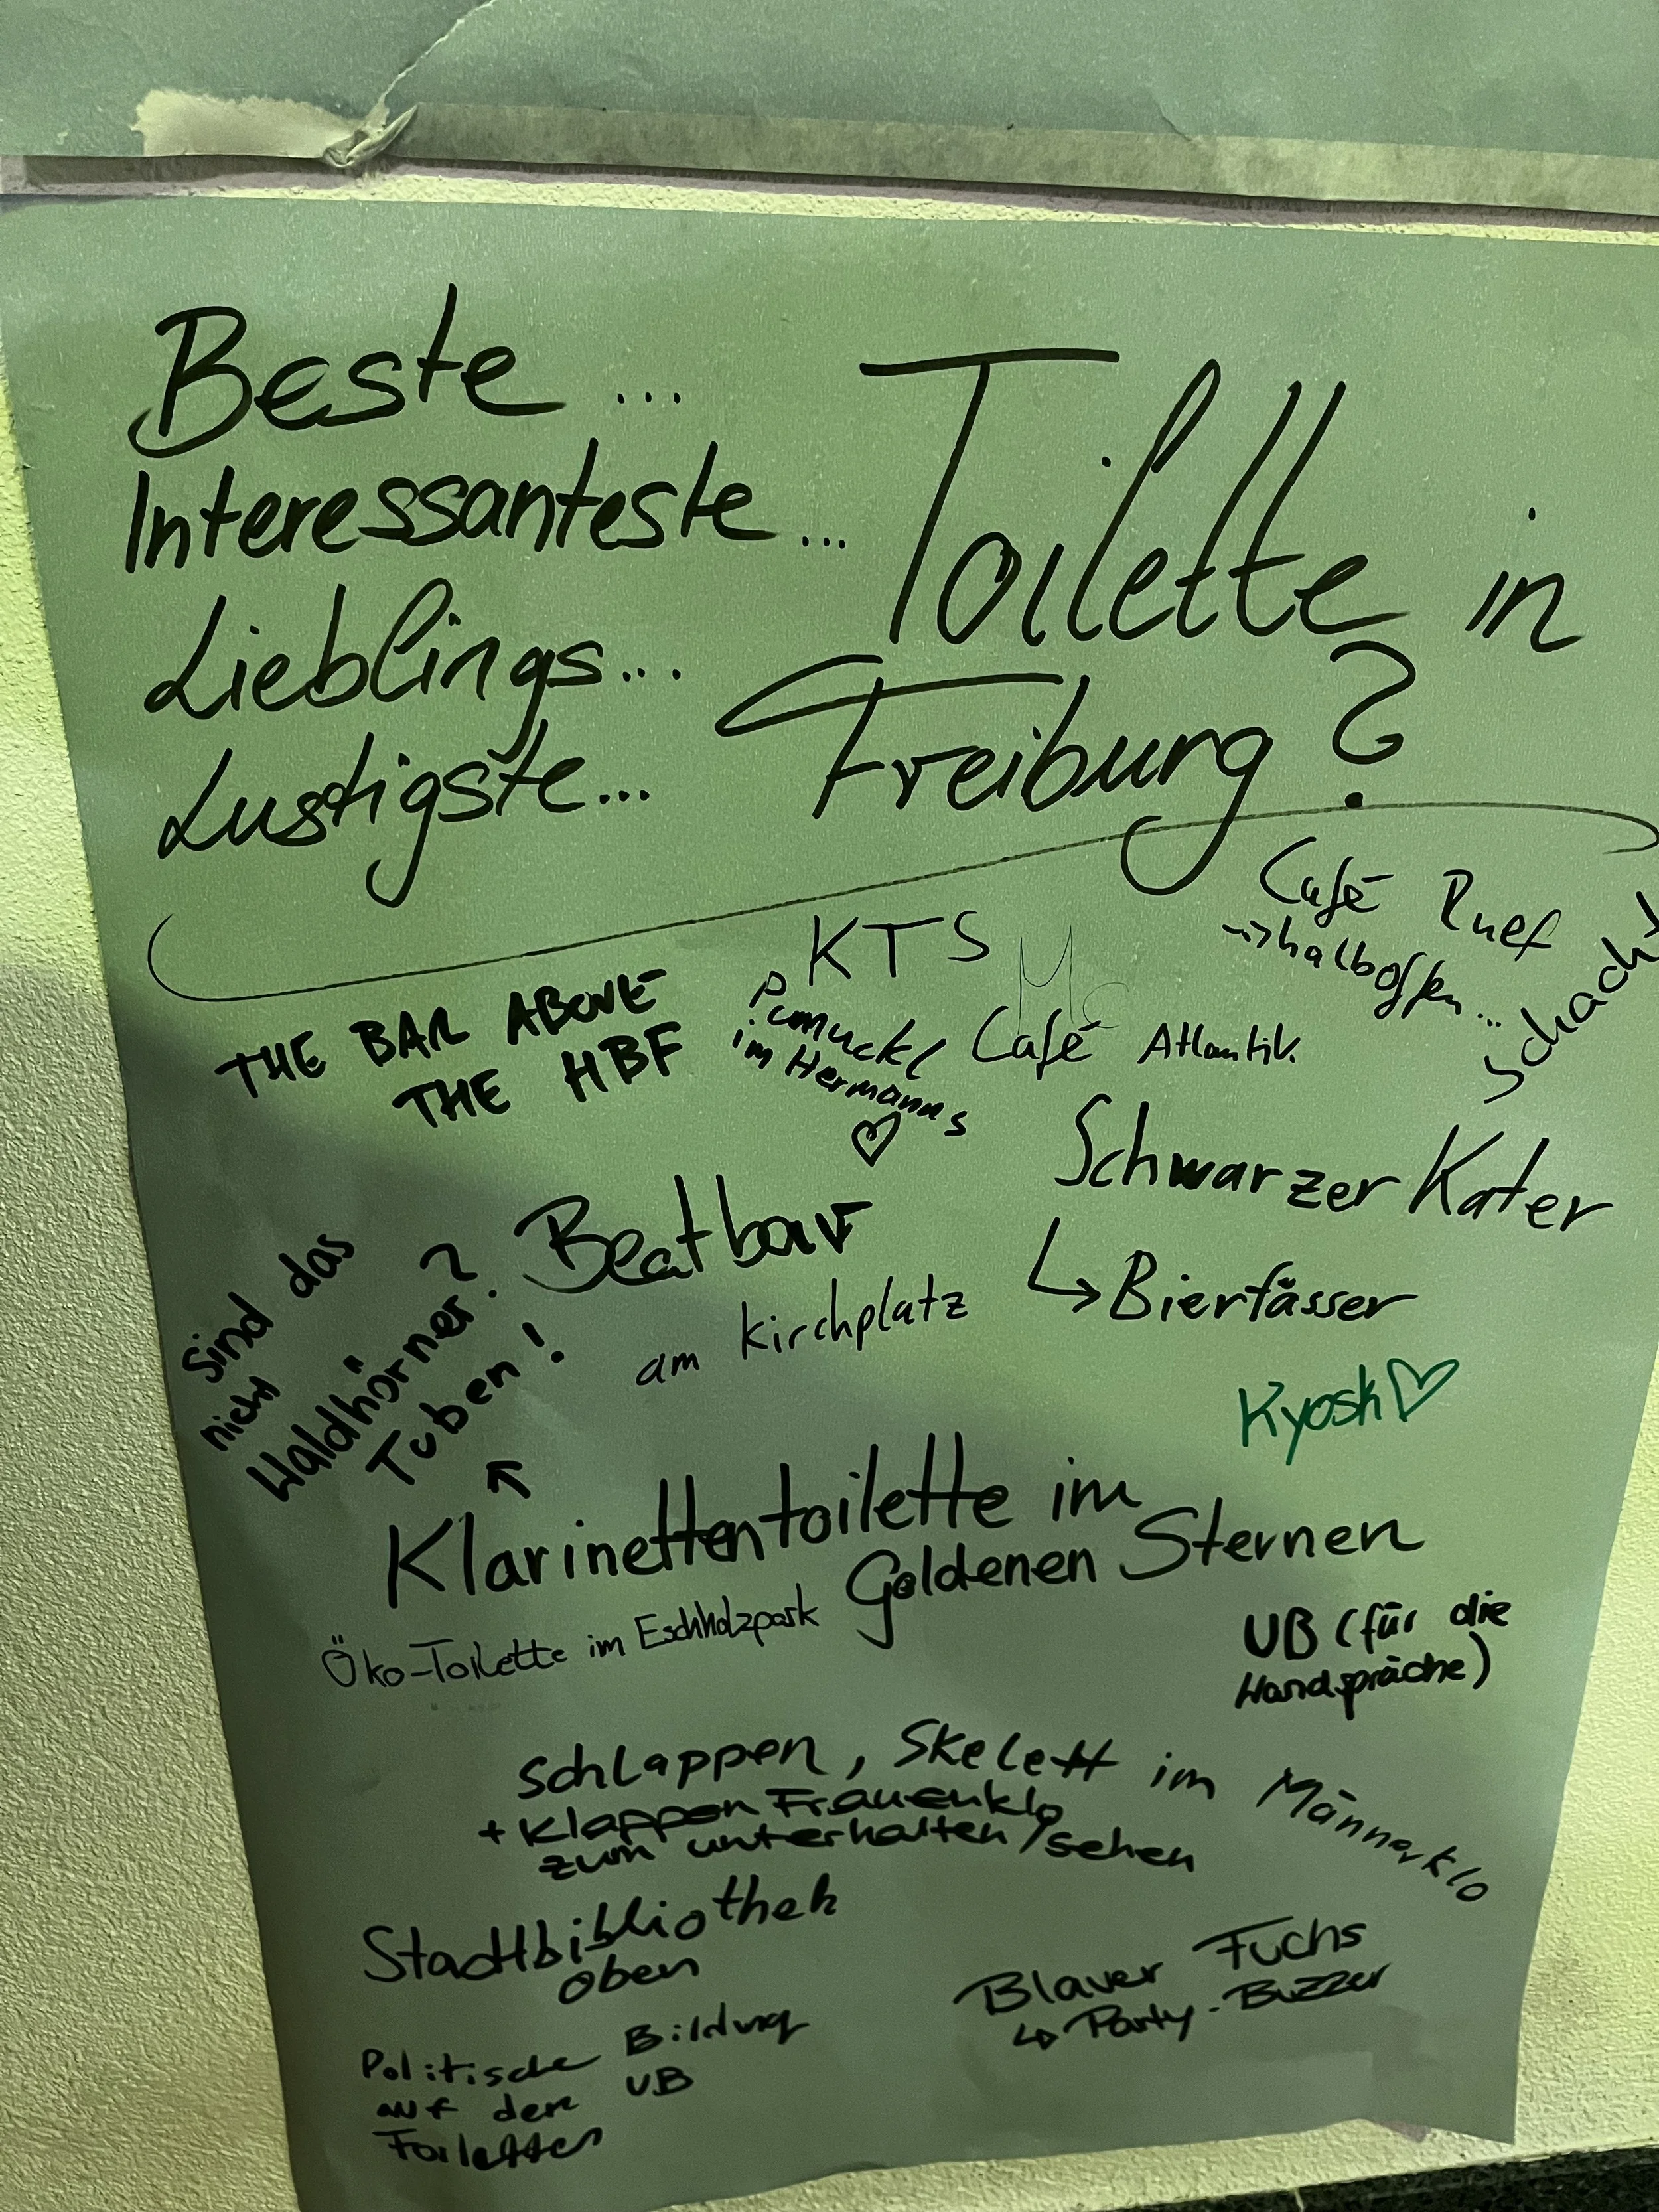 Beste ...
Interessanteste ...
Lieblings ...
Lustigste ...
Toilette in
Freiburg?
Café Ruef
halboffen ...
Schach!
KTS
Mc
THE BAR ABOVE
THE HBF
Pumuckl
im Hermanns
♡
Café Atlantik.
Schwarzer Kater
↳ Bierfässer
Beatbar
am Kirchplatz
Sind das
nicht
Waldhörner?
Tuben!
Kyosk ♡
Klarinettentoilette im
Goldenen Sternen
Öko-Toilette im Eschholzpark
UB (für die
Wandspräche)
Schlappen, Skelett im Männerklo
+ Klappen Frauenklo
zum unterhalten/sehen
Stadtbibliothek
oben
Blauer Fuchs
↳ Party-Buzzer
Politische Bildung
auf den UB
Toiletten